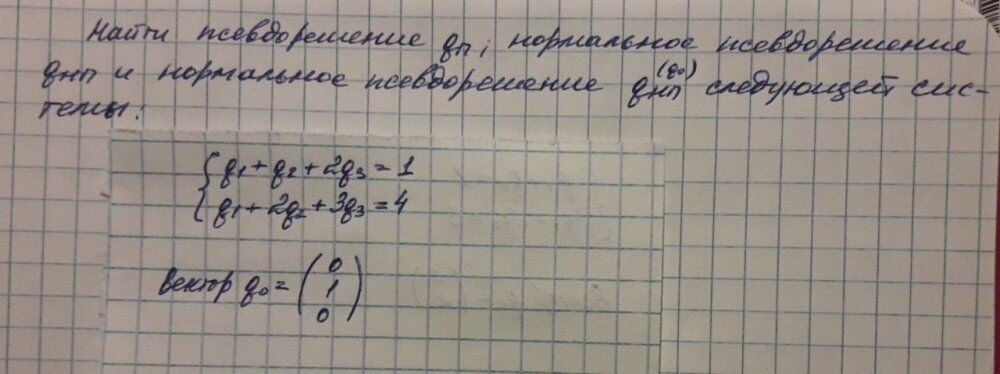 Найти псевдорешение qп, нормальное псевдорешение
qнп и нормальное псевдорешение qнп^(q₀) следующей сис-
темы:
{ q₁ + q₂ + 2q₃ = 1
q₁ + 2q₂ + 3q₃ = 4
Вектор q₀ = (0
1
0)